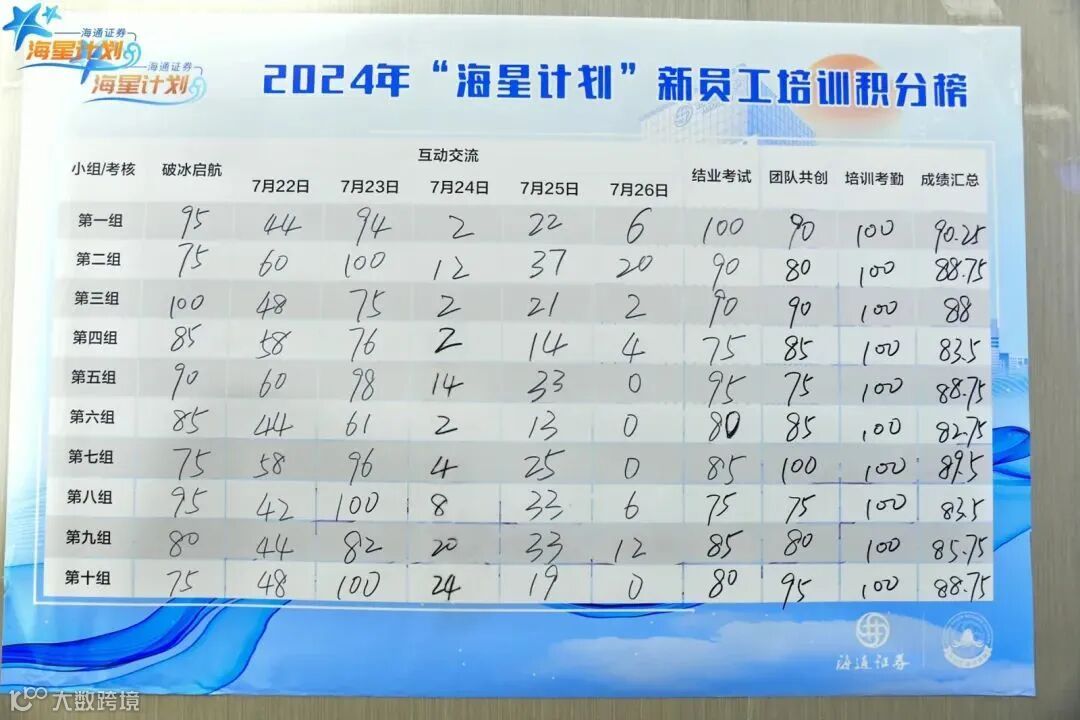 海通证券
海星计划
海通证券
海星计划
2024年“海星计划”新员工培训积分榜
小组/考核 破冰启航 互动交流 结业考试 团队共创 培训考勤 成绩汇总
7月22日 7月23日 7月24日 7月25日 7月26日
第一组 95 44 94 2 22 6 100 90 100 90.25
第二组 75 60 100 12 37 20 90 80 100 88.75
第三组 100 48 75 2 21 2 90 90 100 88
第四组 85 58 76 2 14 4 75 85 100 83.5
第五组 90 60 98 14 33 0 95 75 100 88.75
第六组 85 44 61 2 13 0 80 85 100 82.75
第七组 75 58 96 4 25 0 85 100 100 89.5
第八组 95 42 100 8 33 6 75 75 100 83.5
第九组 80 44 82 20 33 12 85 80 100 85.75
第十组 75 48 100 24 19 0 80 95 100 88.75
海通证券
大数跨境